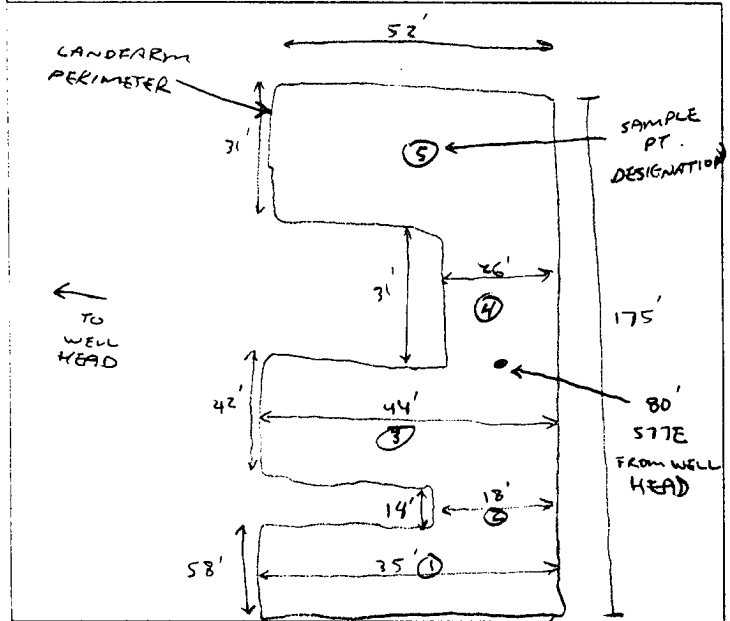 52'
LANDFARM
PERIMETER
31'
5
SAMPLE
PT.
DESIGNATION
31'
26'
4
TO
WELL
HEAD
175'
42'
44'
3
80'
S77E
FROM WELL
HEAD
14'
18'
2
58'
35'
1